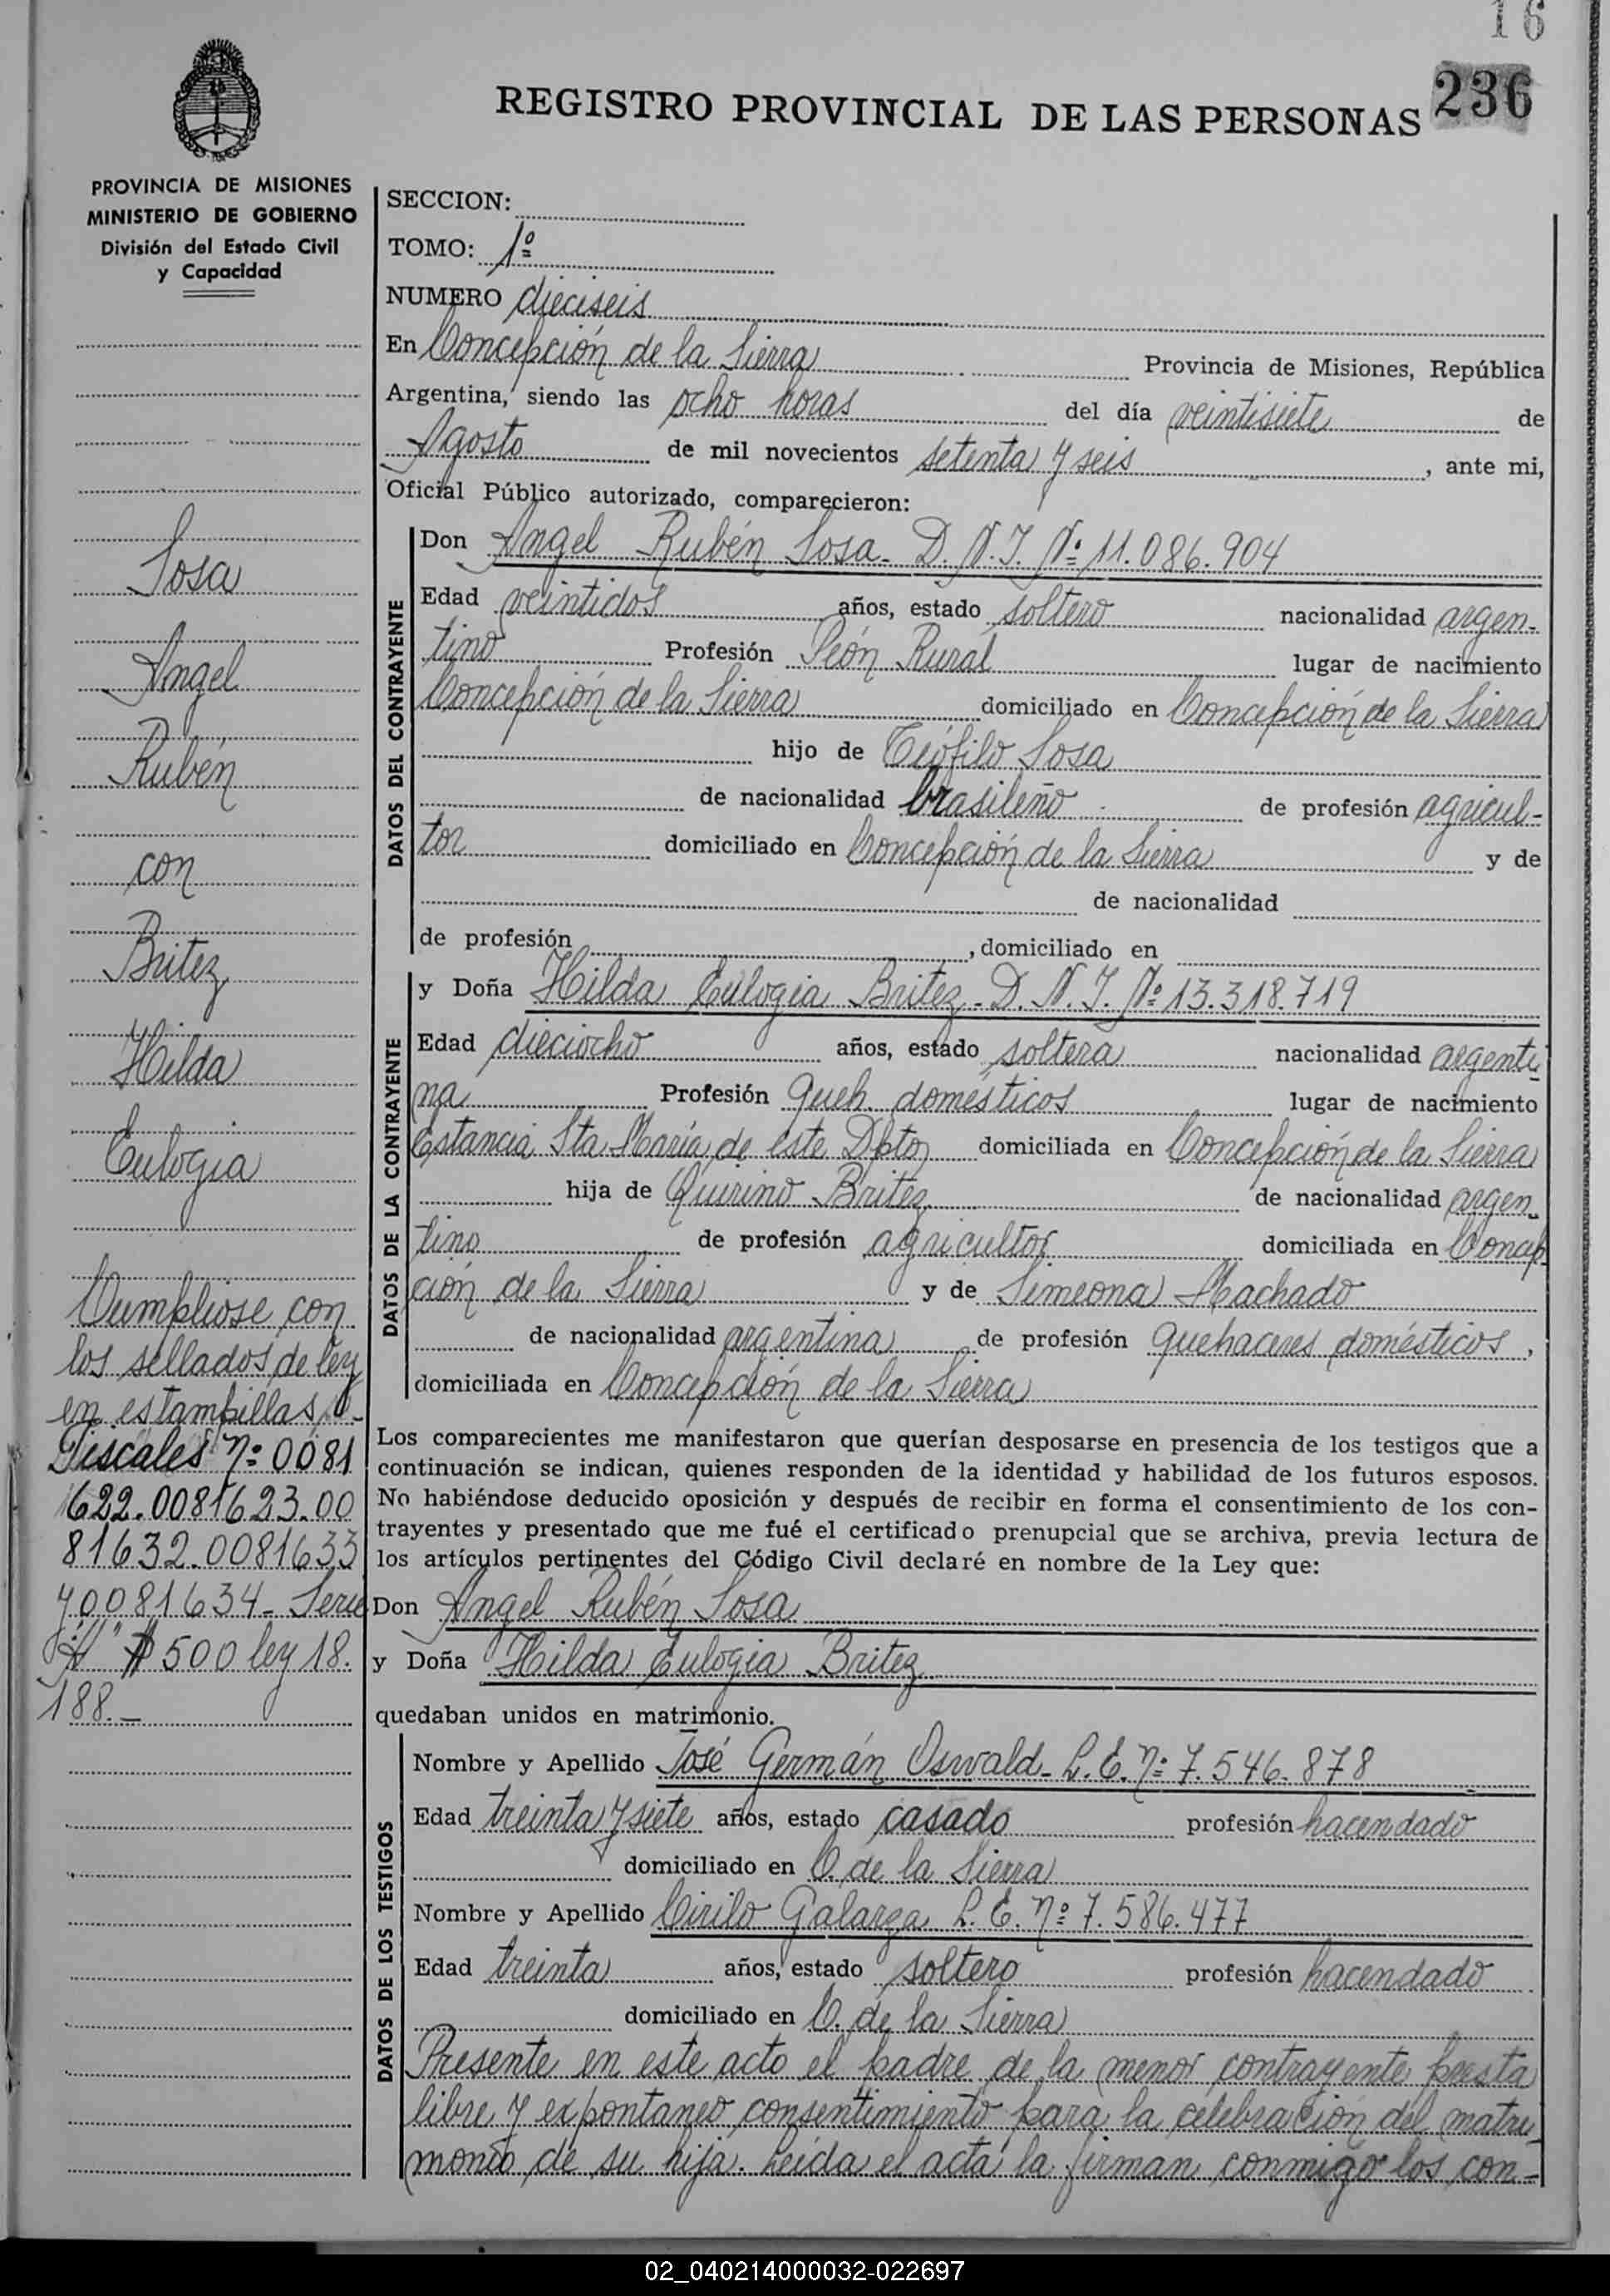 16
236
REGISTRO PROVINCIAL DE LAS PERSONAS
PROVINCIA DE MISIONES
MINISTERIO DE GOBIERNO
División del Estado Civil
y Capacidad
Sosa
Angel
Rubén
con
Britez
Hilda
Eulogia
Cumpliose con
los sellados de ley
en estampillas
Fiscales nº 0081
622.0081623.00
81632.0081633
y 0081634- Serie
"A" $ 500 ley 18.
188.-
SECCION:
TOMO: 1º
NUMERO dieciseis
En Concepción de la Sierra Provincia de Misiones, República
Argentina, siendo las ocho horas del día veintisiete de
Agosto de mil novecientos setenta y seis, ante mi,
Oficial Público autorizado, comparecieron:
DATOS DEL CONTRAYENTE
Don Angel Rubén Sosa- D.N.I. Nº 11.086.904
Edad veintidos años, estado soltero nacionalidad argen-
tino Profesión Peón Rural lugar de nacimiento
Concepción de la Sierra domiciliado en Concepción de la Sierra
hijo de Teófilo Sosa
de nacionalidad brasileño de profesión agricul-
tor domiciliado en Concepción de la Sierra y de
de nacionalidad
de profesión , domiciliado en
DATOS DE LA CONTRAYENTE
y Doña Hilda Eulogia Britez- D.N.I. Nº 13.318.719
Edad dieciocho años, estado soltera nacionalidad argenti-
na Profesión Queh. domésticos lugar de nacimiento
Estancia Sta María de este Dpto domiciliada en Concepción de la Sierra
hija de Quirino Britez de nacionalidad argen-
tino de profesión agricultor domiciliada en Concep
ción de la Sierra y de Simeona Machado
de nacionalidad argentina de profesión quehaceres domésticos,
domiciliada en Concepción de la Sierra
Los comparecientes me manifestaron que querían desposarse en presencia de los testigos que a
continuación se indican, quienes responden de la identidad y habilidad de los futuros esposos.
No habiéndose deducido oposición y después de recibir en forma el consentimiento de los con-
trayentes y presentado que me fué el certificado prenupcial que se archiva, previa lectura de
los artículos pertinentes del Código Civil declaré en nombre de la Ley que:
Don Angel Rubén Sosa
y Doña Hilda Eulogia Britez
quedaban unidos en matrimonio.
DATOS DE LOS TESTIGOS
Nombre y Apellido José Germán Oswald- L.E. nº 7.546.878
Edad treinta y siete años, estado casado profesión hacendado
domiciliado en C. de la Sierra
Nombre y Apellido Cirilo Galarza L.E. nº 7.586.477
Edad treinta años, estado soltero profesión hacendado
domiciliado en C. de la Sierra
Presente en este acto el padre de la menor contrayente presta
libre y expontaneo consentimiento para la celebración del matri-
monio de su hija. Leída el acta la firman conmigo los con-
02_040214000032-022697